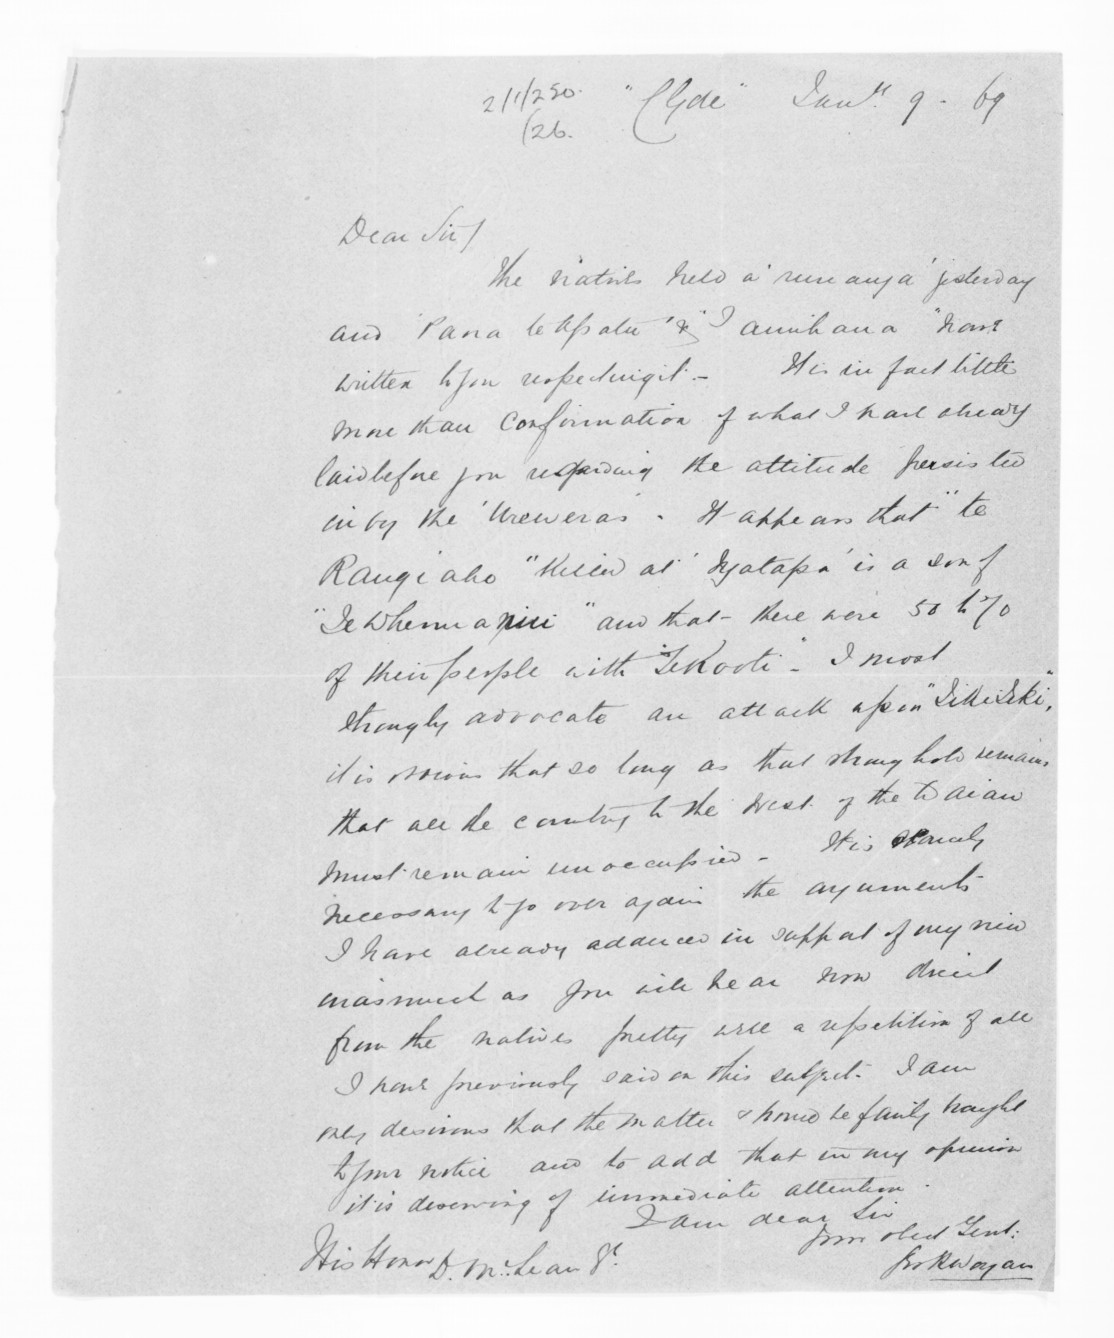 2/1/250.
/26.
"Clyde" Jany. 9 - 69
Dear Sir/
The natives held a 'runanga' yesterday
and 'Paora te Apatu' & ' Tamihana " have
written to you respecting it. - It is in fact little
more than confirmation of what I have already
laid before you regarding the attitude persisted
in by the 'Urewera's'. It appears that "te
Rangiaho" killed at 'Ngatapa' is a son of
"Te Whenuapiii" and that there were 50 to 70
of their people with "TeKooti" - I most
strongly advocate an attack upon "TikiTiki",
it is obvious that so long as that stronghold remains
that all the country to the West of the Waiau
must remain unoccupied - It is scarcely
necessary to go over again the arguments
I have already adduced in support of my view
inasmuch as you will hear now direct
from the natives pretty well a repetition of all
I have previously said on this subject. I am
only desirous that the matter should be fairly brought
to your notice and to add that in my opinion
it is deserving of immediate attention.
I am dear Sir
Your obedt Servt:
His Honor D. McLean